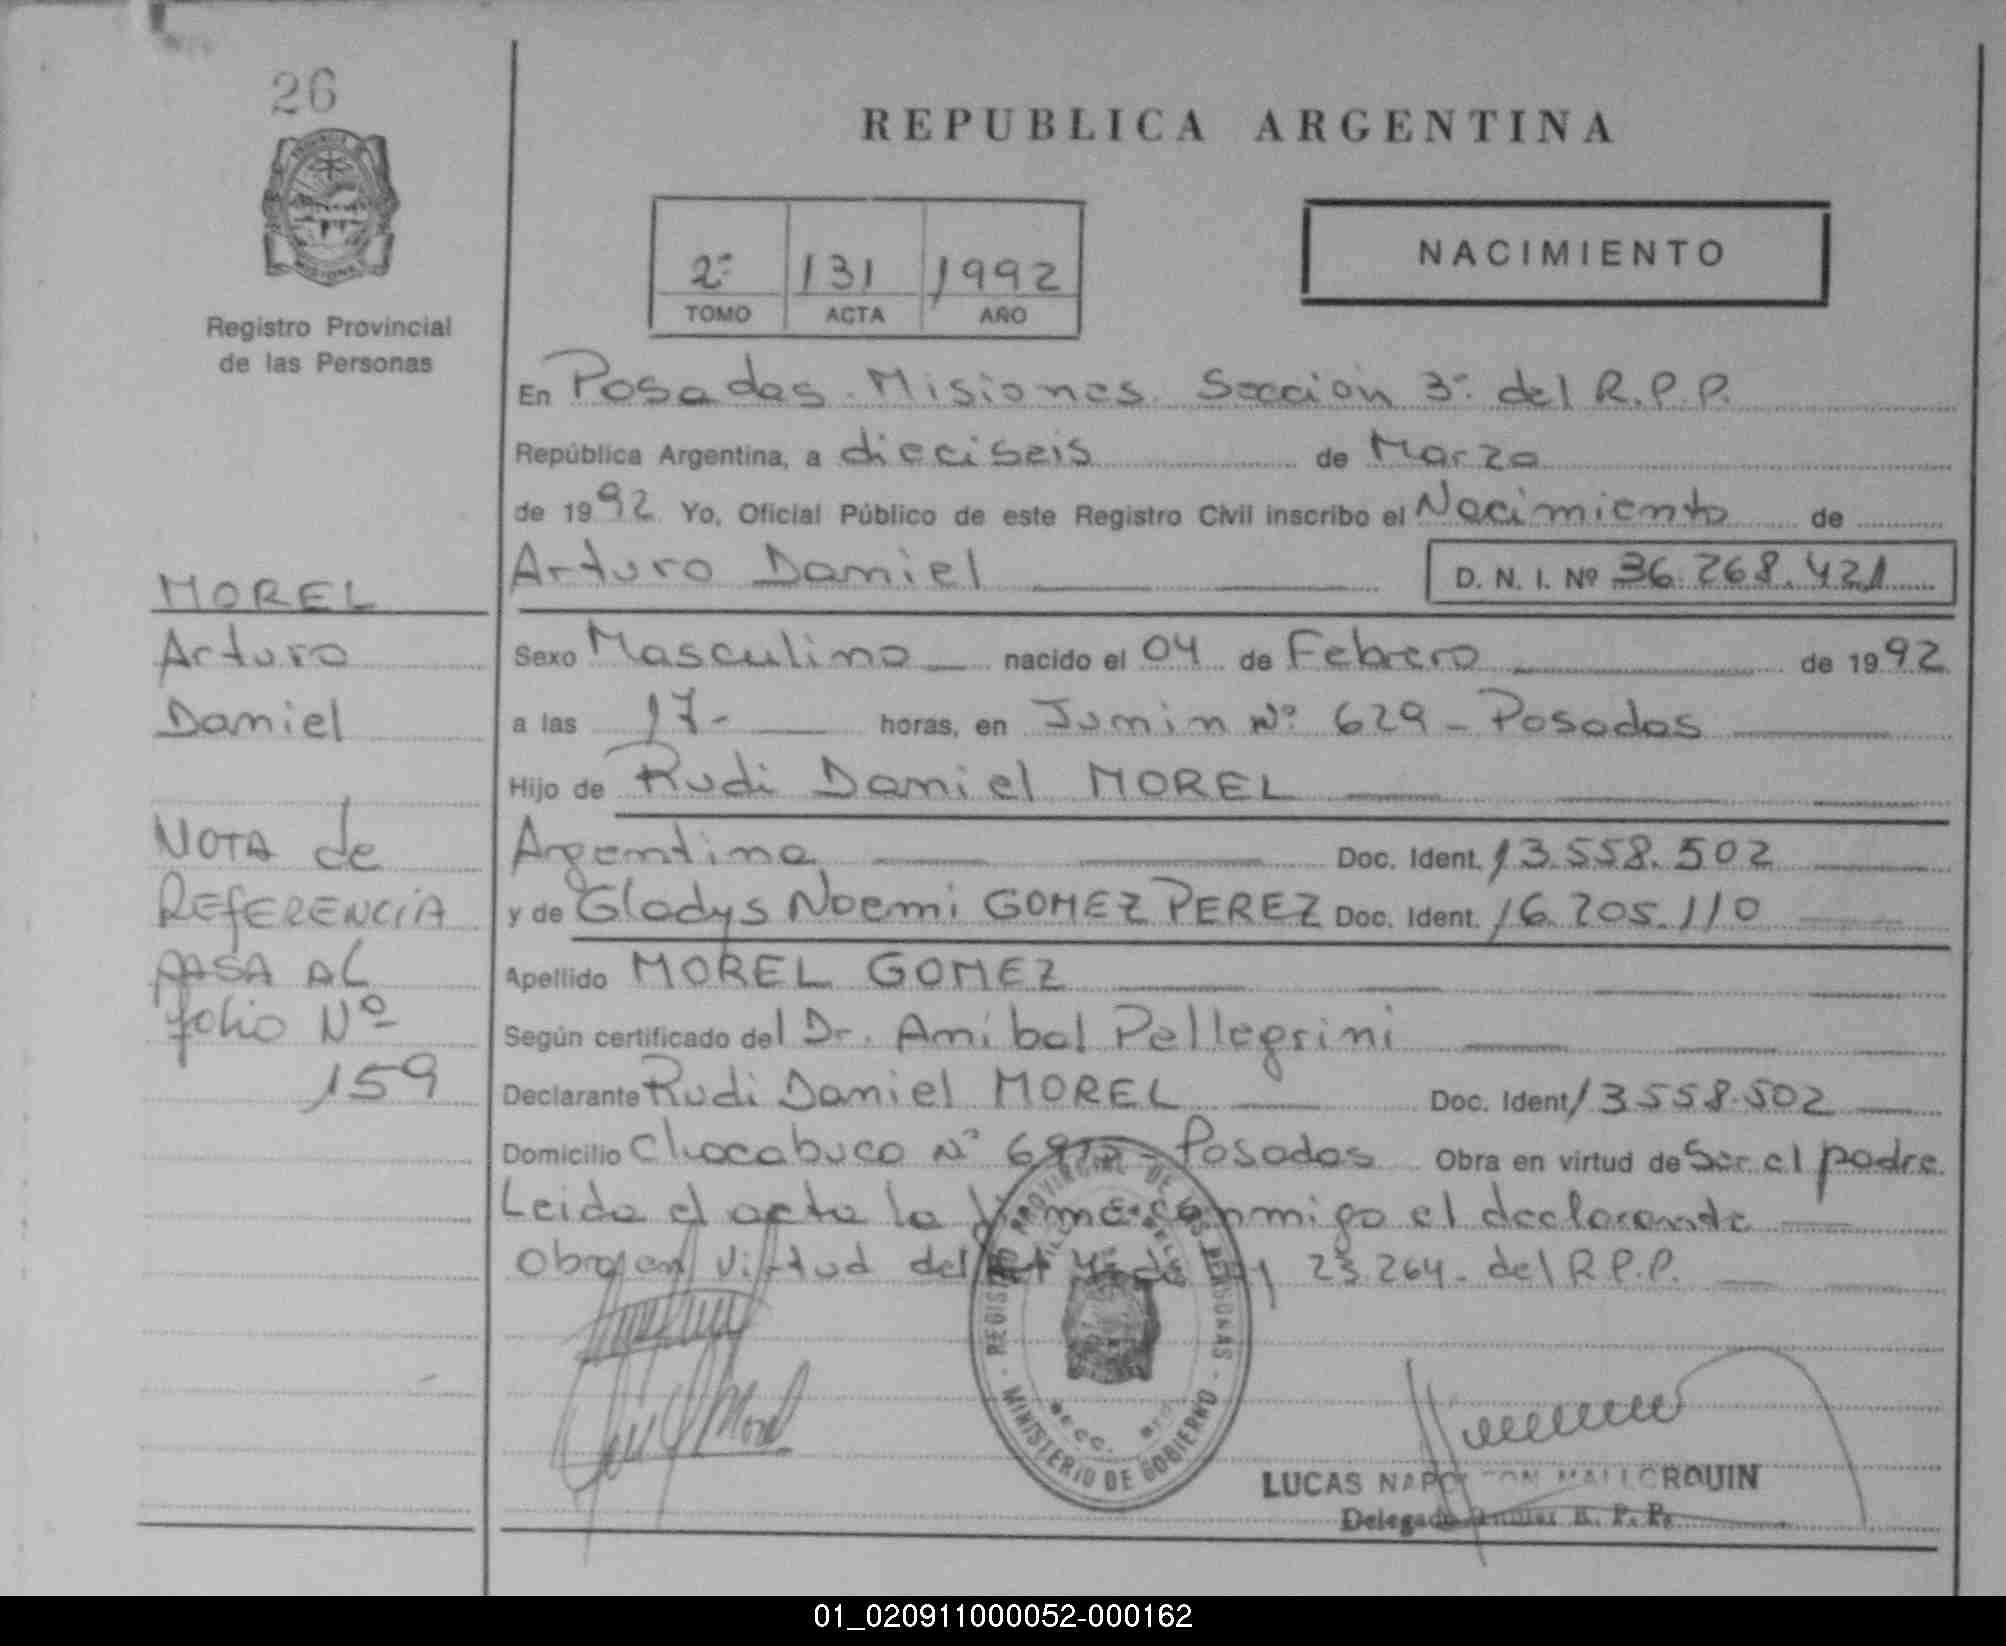 26
REPUBLICA ARGENTINA
NACIMIENTO
2º 131 1992
TOMO ACTA AÑO
Registro Provincial
de las Personas
En Posadas Misiones Sección 3ª del R.P.P.
República Argentina, a dieciseis de Marzo
de 1992 Yo, Oficial Público de este Registro Civil inscribo el Nacimiento de
Arturo Daniel D. N. I. Nº 36.268.421
Sexo Masculino nacido el 04 de Febrero de 1992
a las 17- horas, en Junin Nº 629 - Posadas
Hijo de Rudi Daniel MOREL
Argentina Doc. Ident. 13.558.502
y de Gladys Noemi GOMEZ PEREZ Doc. Ident. 16.205.110
Apellido MOREL GOMEZ
Según certificado del Dr. Anibal Pellegrini
Declarante Rudi Daniel MOREL Doc. Ident 13.558.502
Domicilio Chacabuco Nº Posadas Obra en virtud de Ser el padre
Leida el acta la firma conmigo el declarante
Obra en virtud del 23.264 - del R.P.P.
MOREL
Arturo
Daniel
NOTA de
REFERENCIA
PASA AL
folio Nº
159
REGISTRO PROVINCIAL DE LAS PERSONAS
MINISTERIO DE GOBIERNO
Morel
LUCAS NAPOLEON MALLORQUIN
Delegado R. P. P.
01_020911000052-000162